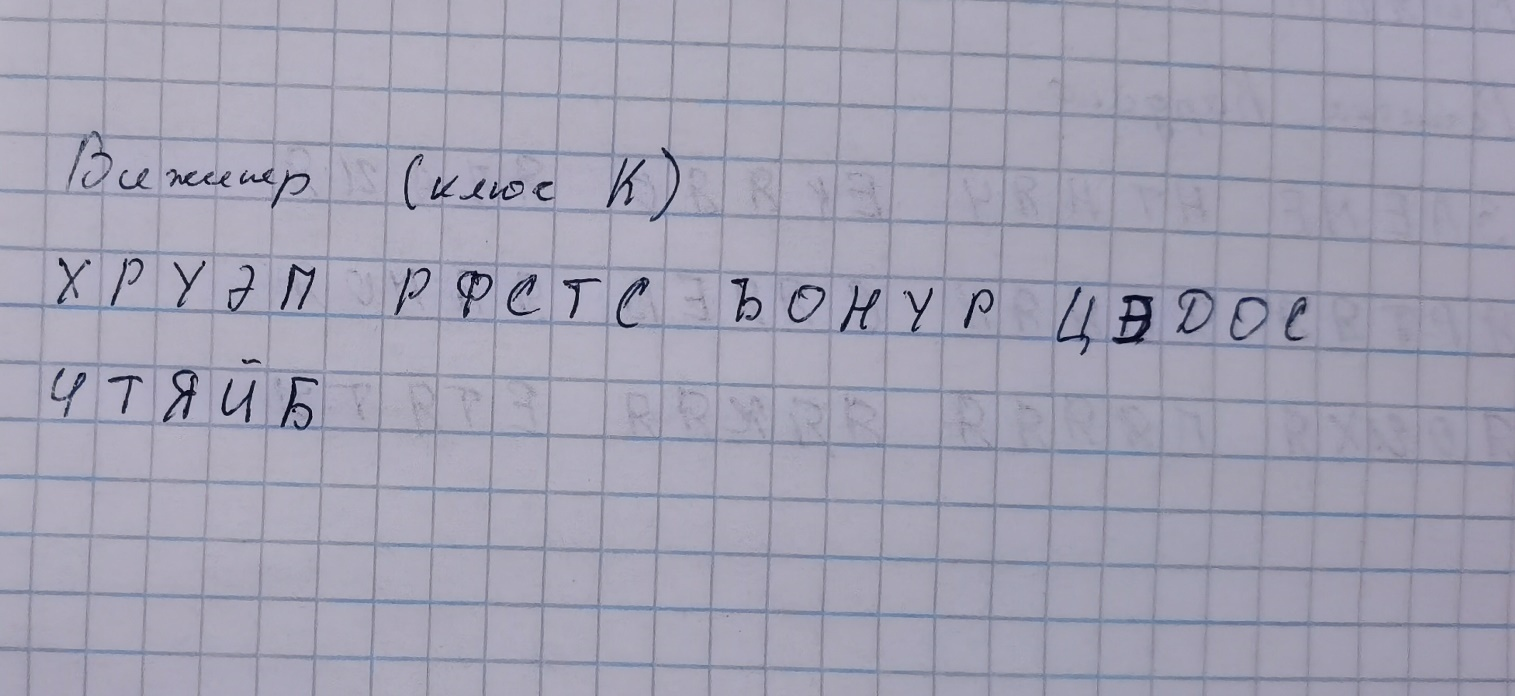 Виженер (ключ К)
ХРУЭП РФСТС ЪОНУР ЦЭДОС
ЧТЯЙБ